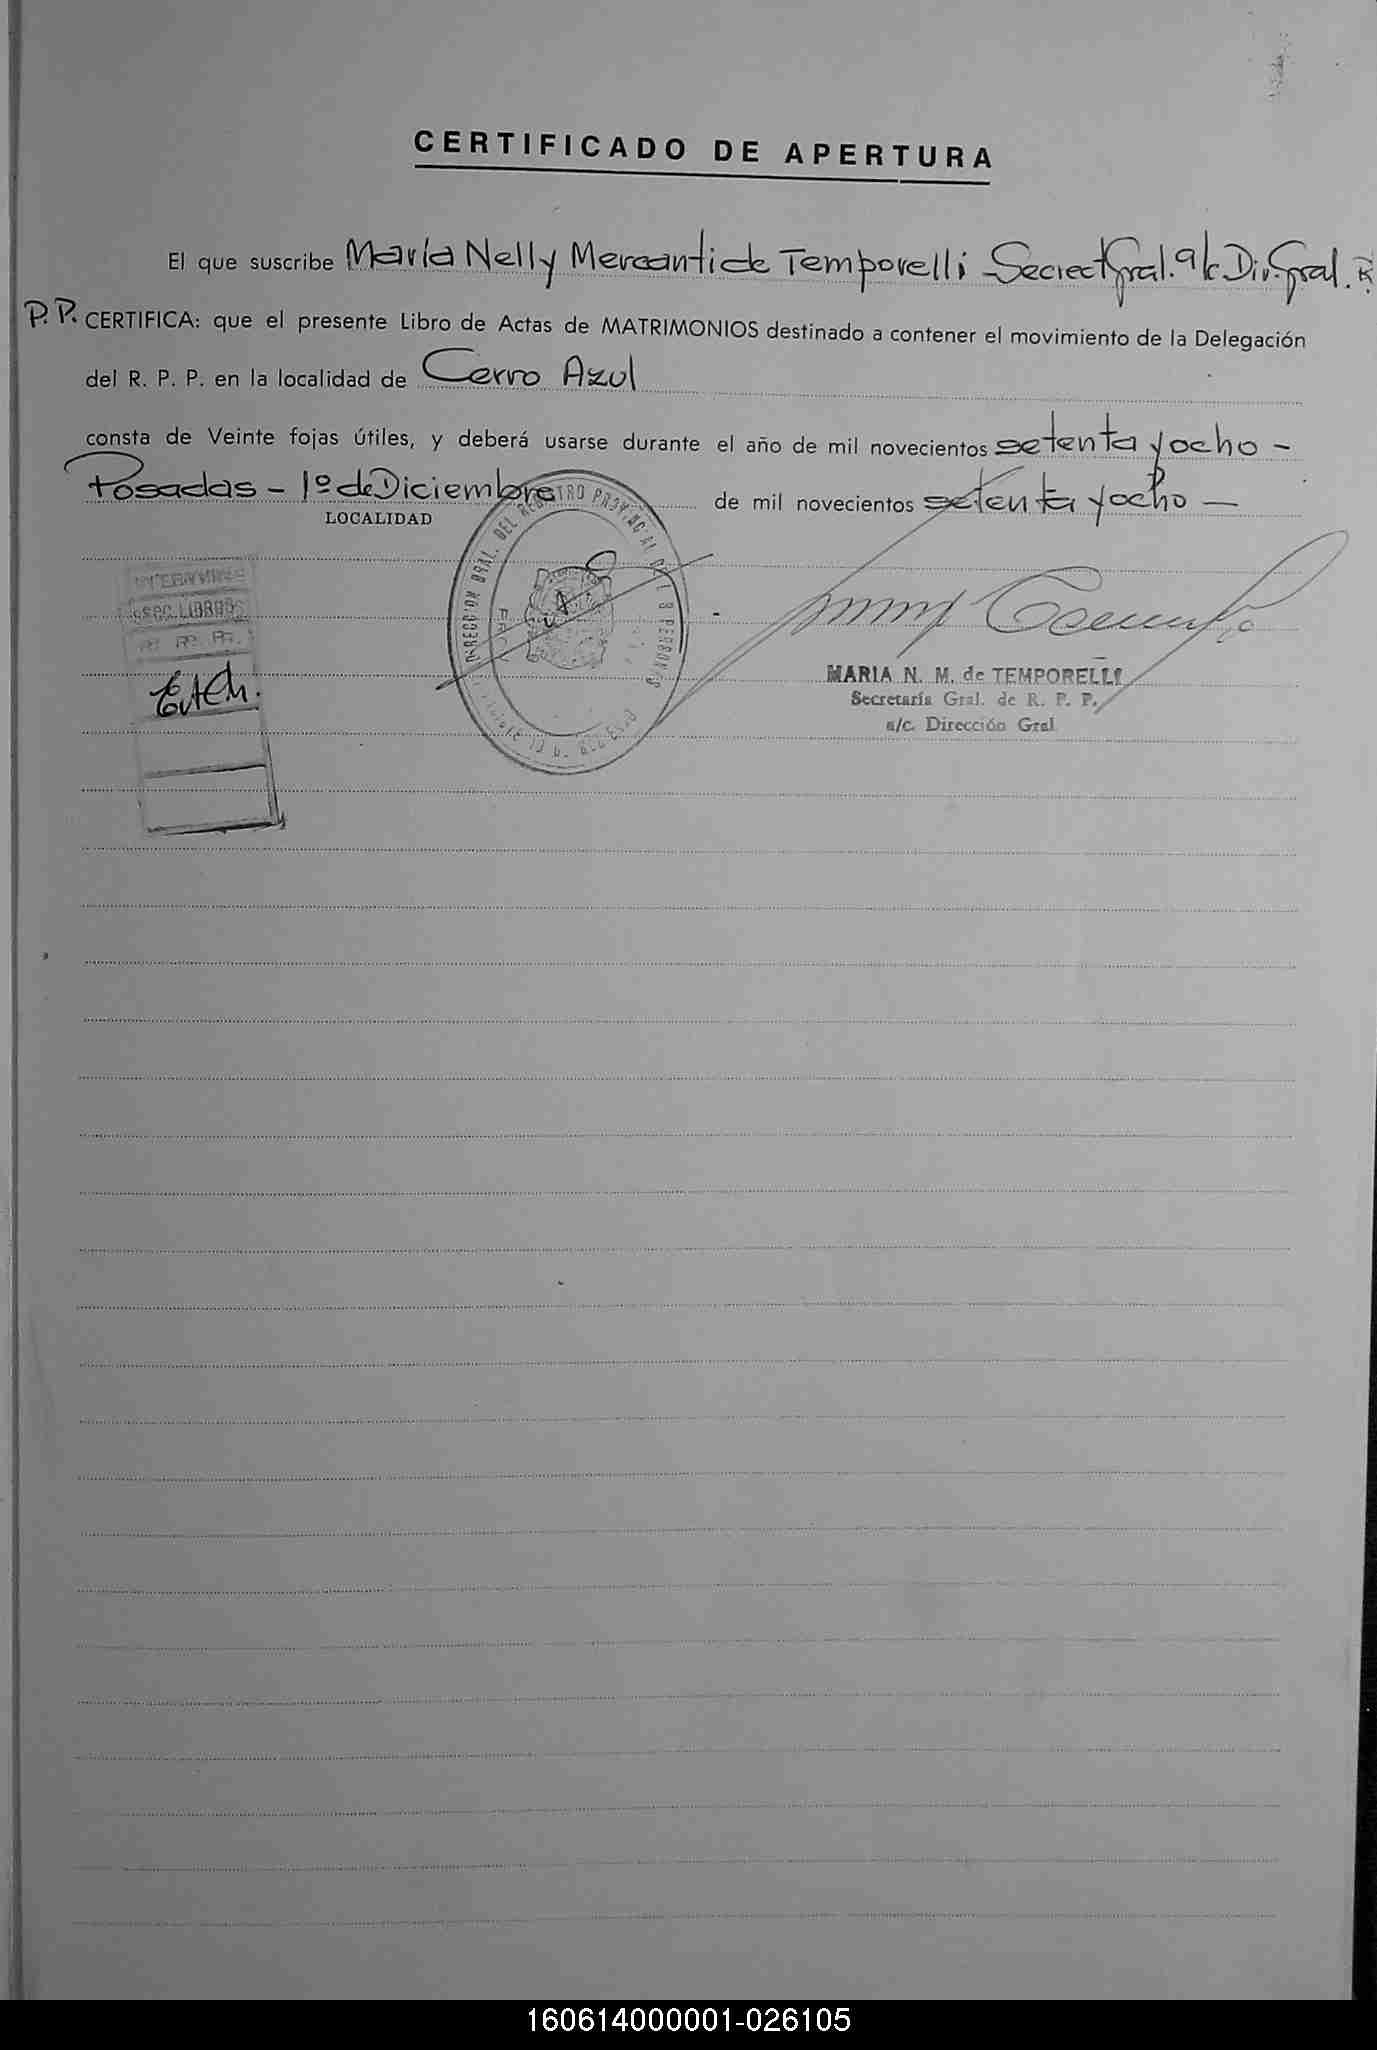 CERTIFICADO DE APERTURA
El que suscribe María Nelly Mercanti de Temporelli Secret Gral. a/c Dir. Gral. R.
P.P. CERTIFICA: que el presente Libro de Actas de MATRIMONIOS destinado a contener el movimiento de la Delegación
del R. P. P. en la localidad de Cerro Azul
consta de Veinte fojas útiles, y deberá usarse durante el año de mil novecientos setenta y ocho -
Posadas - 1º de Diciembre de mil novecientos setenta y ocho -
LOCALIDAD
DIRECCION GRAL. DEL REGISTRO PROVINCIAL DE LAS PERSONAS
SECC. LIBROS
MARIA N. M. de TEMPORELLI
Secretaría Gral. de R. P. P.
a/c. Dirección Gral.
160614000001-026105